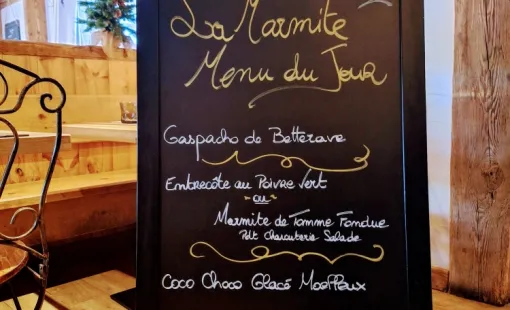 La Marmite
Menu du Jour
Gaspacho de Betterave
Entrecôte au Poivre Vert
ou
Marmite de Tomme Fondue
Pdt Charcuterie Salade
Coco Choco Glacé Moelleux